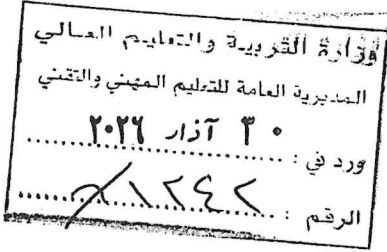 وزارة التربية والتعليم العالي
المديرية العامة للتعليم المهني والتقني
ورد في : ٣٠ آذار ٢٠٢٦
الرقم : ١٢٤٢